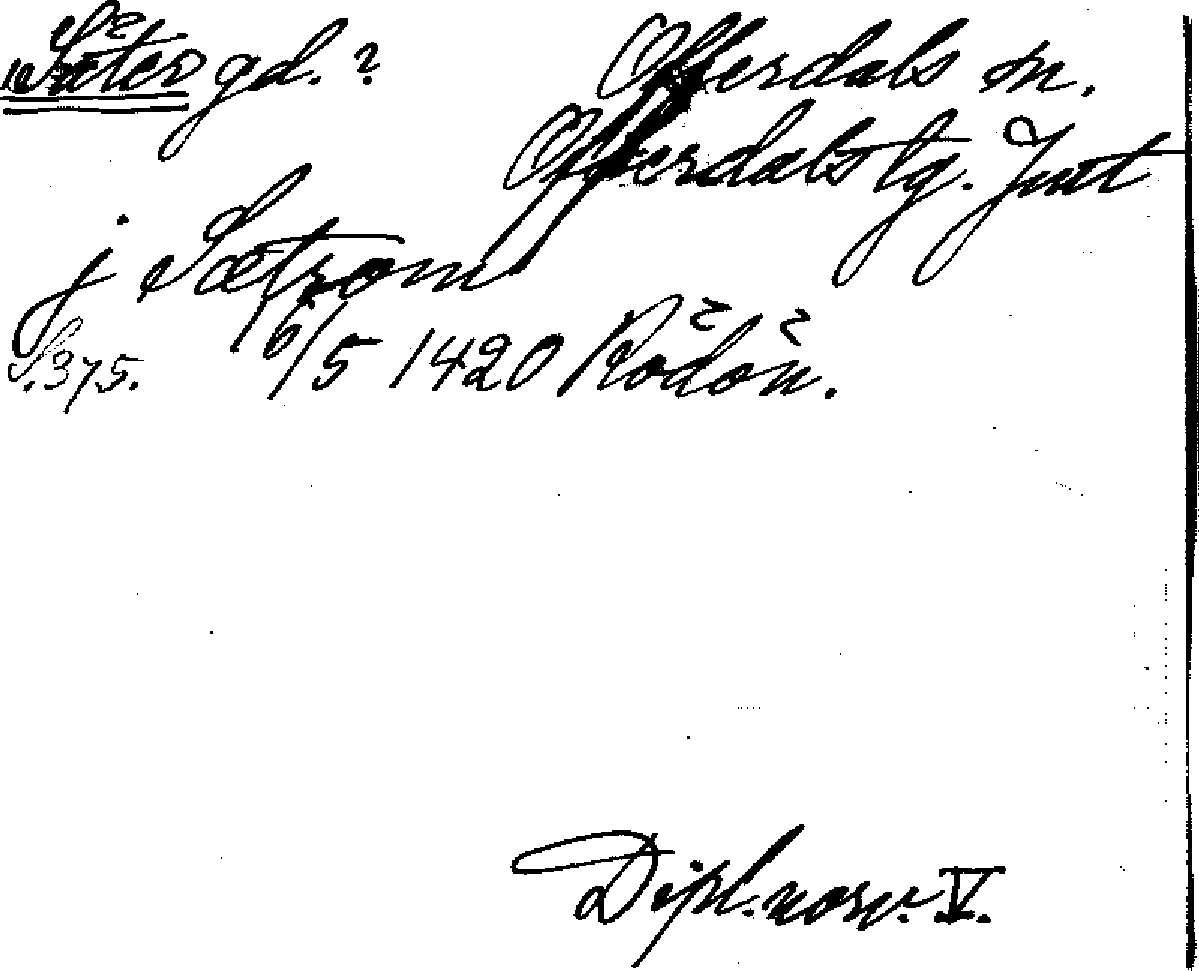 Säter gd. ?
Offerdals sn.
Offerdals tg. Jmt
j Sætrom
S. 375. 16/5 1420 Rödön.
Dipl. norv. V.